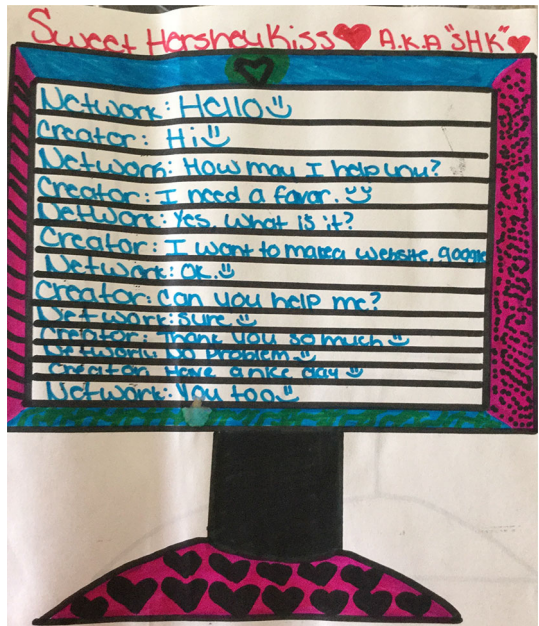 Sweet Hershey Kiss A.K.A "SHK"
Network: Hello
Creator: Hi
Network: How may I help you?
Creator: I need a favor.
Network: Yes, what is it?
Creator: I want to make a website, google
Network: OK.
Creator: can you help me?
Network: sure
Creator: Thank you so much
Network: No problem.
Creator: Have a nice day
Network: You too